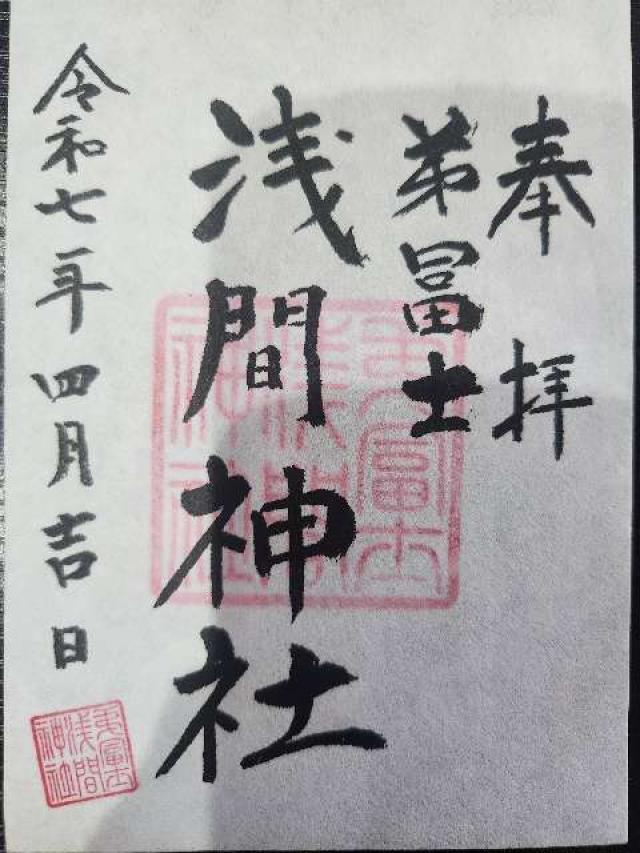 奉拝
弟冨士
浅間神社
令和七年四月吉日
弟富士
浅間
神社
弟富士
浅間
神社